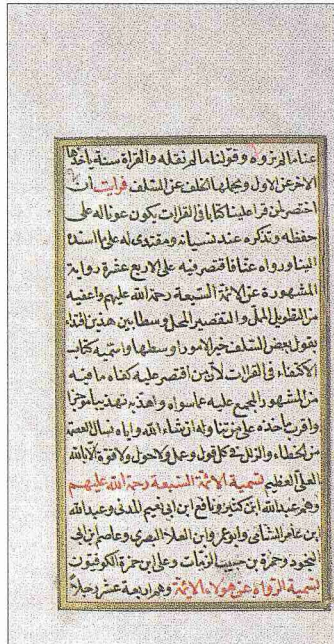 عنا ما لم نروه وقولنا ما لم نقله والقراة سنة ياخذها
الاخر عن الاول ويحملها الخلف عن السلف فرايت ان
اختصر لمن قرا علينا كتابا فى القراات يكون عونا له على
حفظه وتذكره عند نسيانه ومقتدى له على ما اسنده
الينا ورواه عنا فاقتصر فيه على الاربع عشرة رواية
المشهورة عن الائمة السبعة رحمة الله عليهم واعفيه
من التطويل الممل والتقصير المخل وسطا بين هذين اقتداء
بقول بعض السلف خير الامور اوسطها واسميه كتاب
الاكتفاء فى القراات لأن من اقتصر عليه كفاه ما فيه
من المشهور المجمع عليه عما سواه واهذبه تهذيبا موجزا
واقرب ماخذه على من تناوله ان شاء الله واياه نسال العصمة
من الخطاء والزلل فى كل قول وعمل ولا حول ولا قوة الا بالله
العلى العظيم تسمية الائمة السبعة رحمة الله عليهم
وهم عبد الله ابن كثير ونافع ابن ابى نعيم المدنى وعبد الله
ابن عامر الشامى وابو عمرو ابن العلاء البصرى وعاصم بن ابى
النجود وحمزة بن حبيب الزيات وعلى بن حمزة الكوفيون
تسمية الرواة عن هولاء الائمة وهم اربعة عشر رجلا